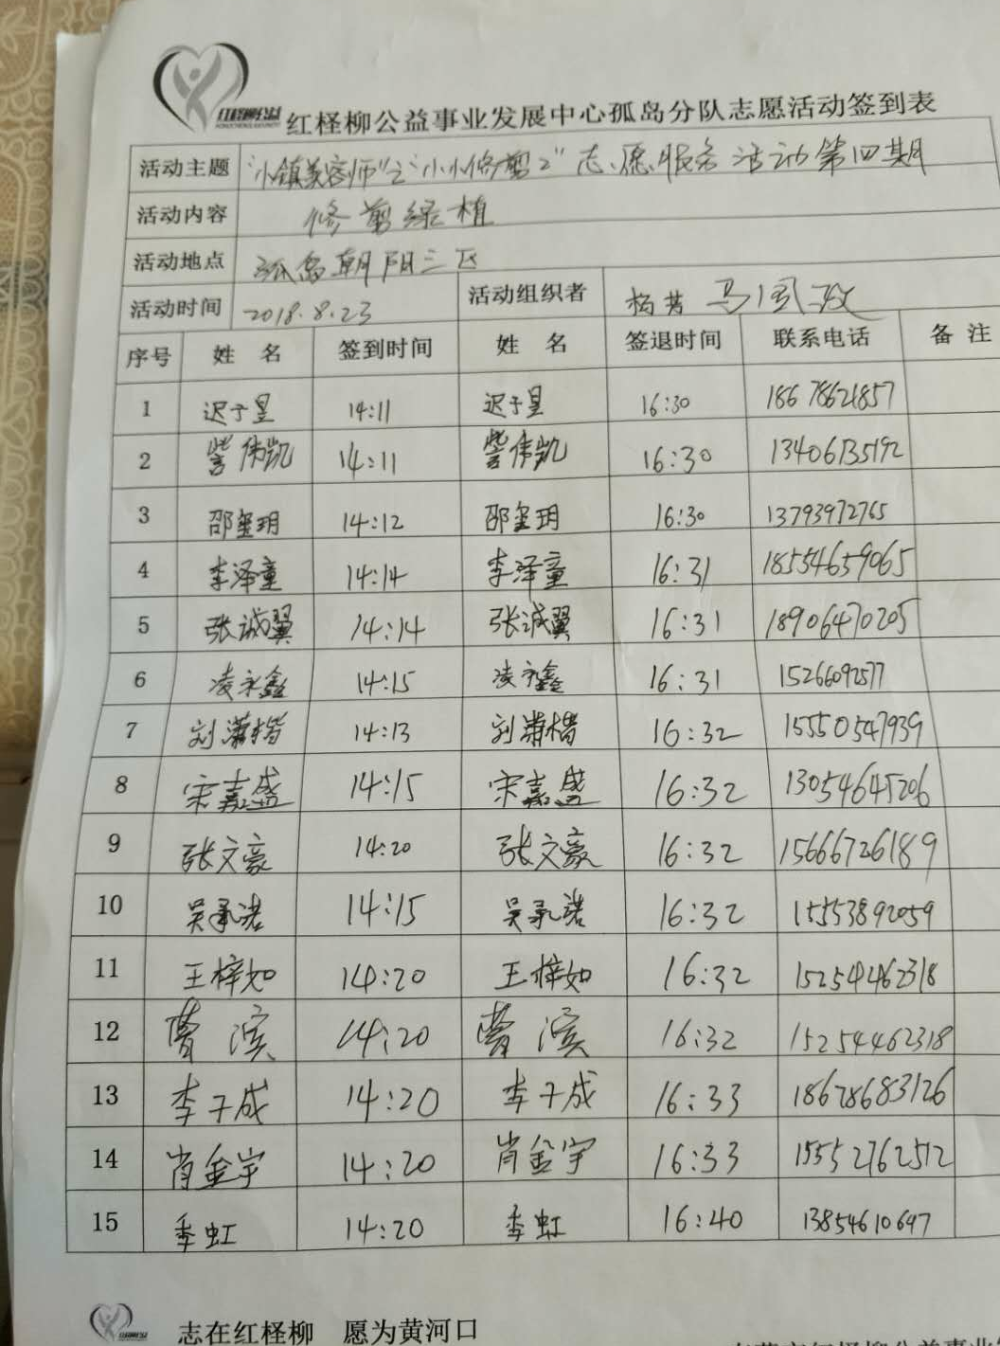 红柽柳公益事业发展中心孤岛分队志愿活动签到表
活动主题 “小镇美容师”之“小小修剪工”志愿服务活动第四期
活动内容 修剪绿植
活动地点 孤岛朝阳三区
活动时间 2018.8.23 活动组织者 杨芳 马国政
序号 姓 名 签到时间 姓 名 签退时间 联系电话 备 注
1 迟于昱 14:11 迟于昱 16:30 18678621857
2 訾伟凯 14:11 訾伟凯 16:30 13406135192
3 邵玺玥 14:12 邵玺玥 16:30 13793972765
4 李泽童 14:14 李泽童 16:31 18554659065
5 张诚翼 14:14 张诚翼 16:31 18906470205
6 凌永鑫 14:15 凌永鑫 16:31 15266092577
7 刘潇楷 14:13 刘潇楷 16:32 15550547939
8 宋嘉盛 14:15 宋嘉盛 16:32 13054645206
9 张文豪 14:20 张文豪 16:32 15666726189
10 吴承诺 14:15 吴承诺 16:32 15553892059
11 王梓如 14:20 王梓如 16:32 15254462318
12 曹滨 14:20 曹滨 16:32 15254462318
13 李子成 14:20 李子成 16:33 18678683126
14 肖金宇 14:20 肖金宇 16:33 15552762512
15 季虹 14:20 季虹 16:40 13854610697
志在红柽柳 愿为黄河口